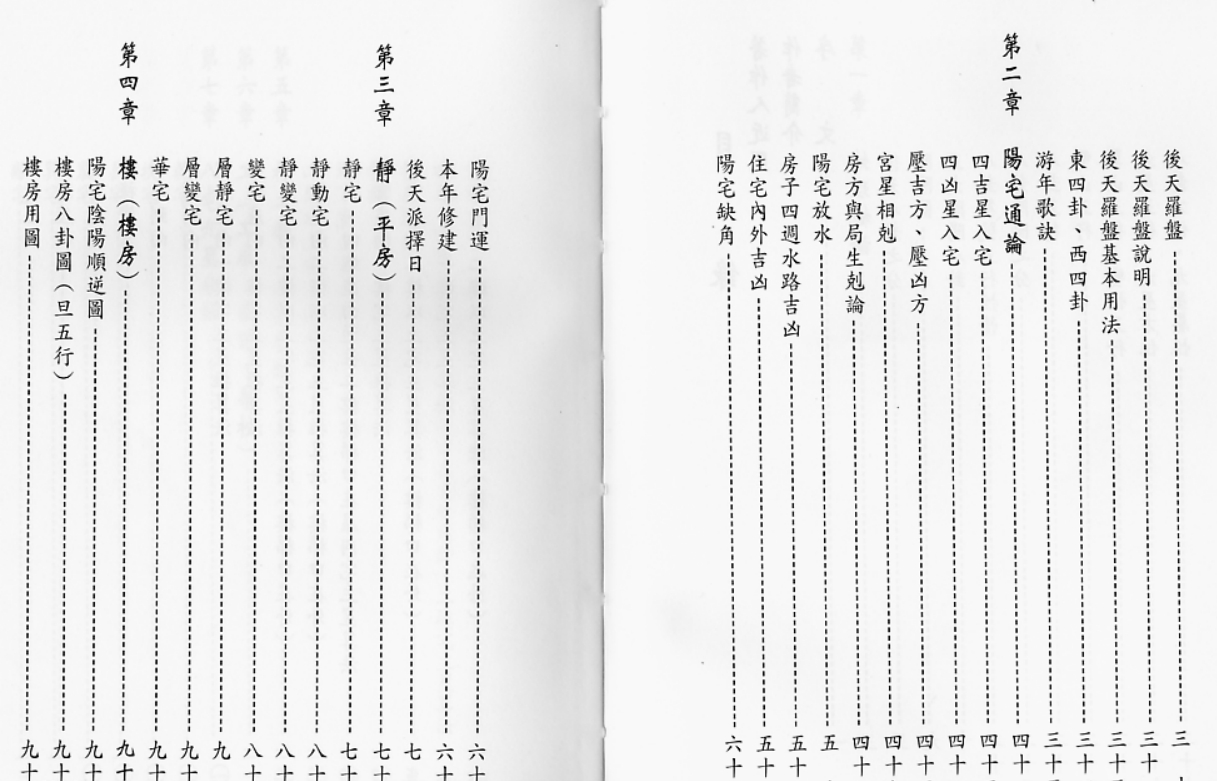 後天羅盤 三
後天羅盤說明 三十
後天羅盤基本用法 三十
東四卦、西四卦 三十
游年歌訣 三十
第二章 陽宅通論 四十
四吉星入宅 四十
四凶星入宅 四十
壓吉方、壓凶方 四十
宮星相剋 四十
房方與局生剋論 四十
陽宅放水 五
房子四週水路吉凶 五十
住宅內外吉凶 五十
陽宅缺角 六十
陽宅門運 六十
本年修建 六十
後天派擇日 七
第三章 靜（平房） 七十
靜宅 七十
靜動宅 八十
靜變宅 八十
變宅 八十
層靜宅 九
層變宅 九十
華宅 九十
第四章 樓（樓房） 九十
陽宅陰陽順逆圖 九十
樓房八卦圖（旦五行） 九十
樓房用圖 九十